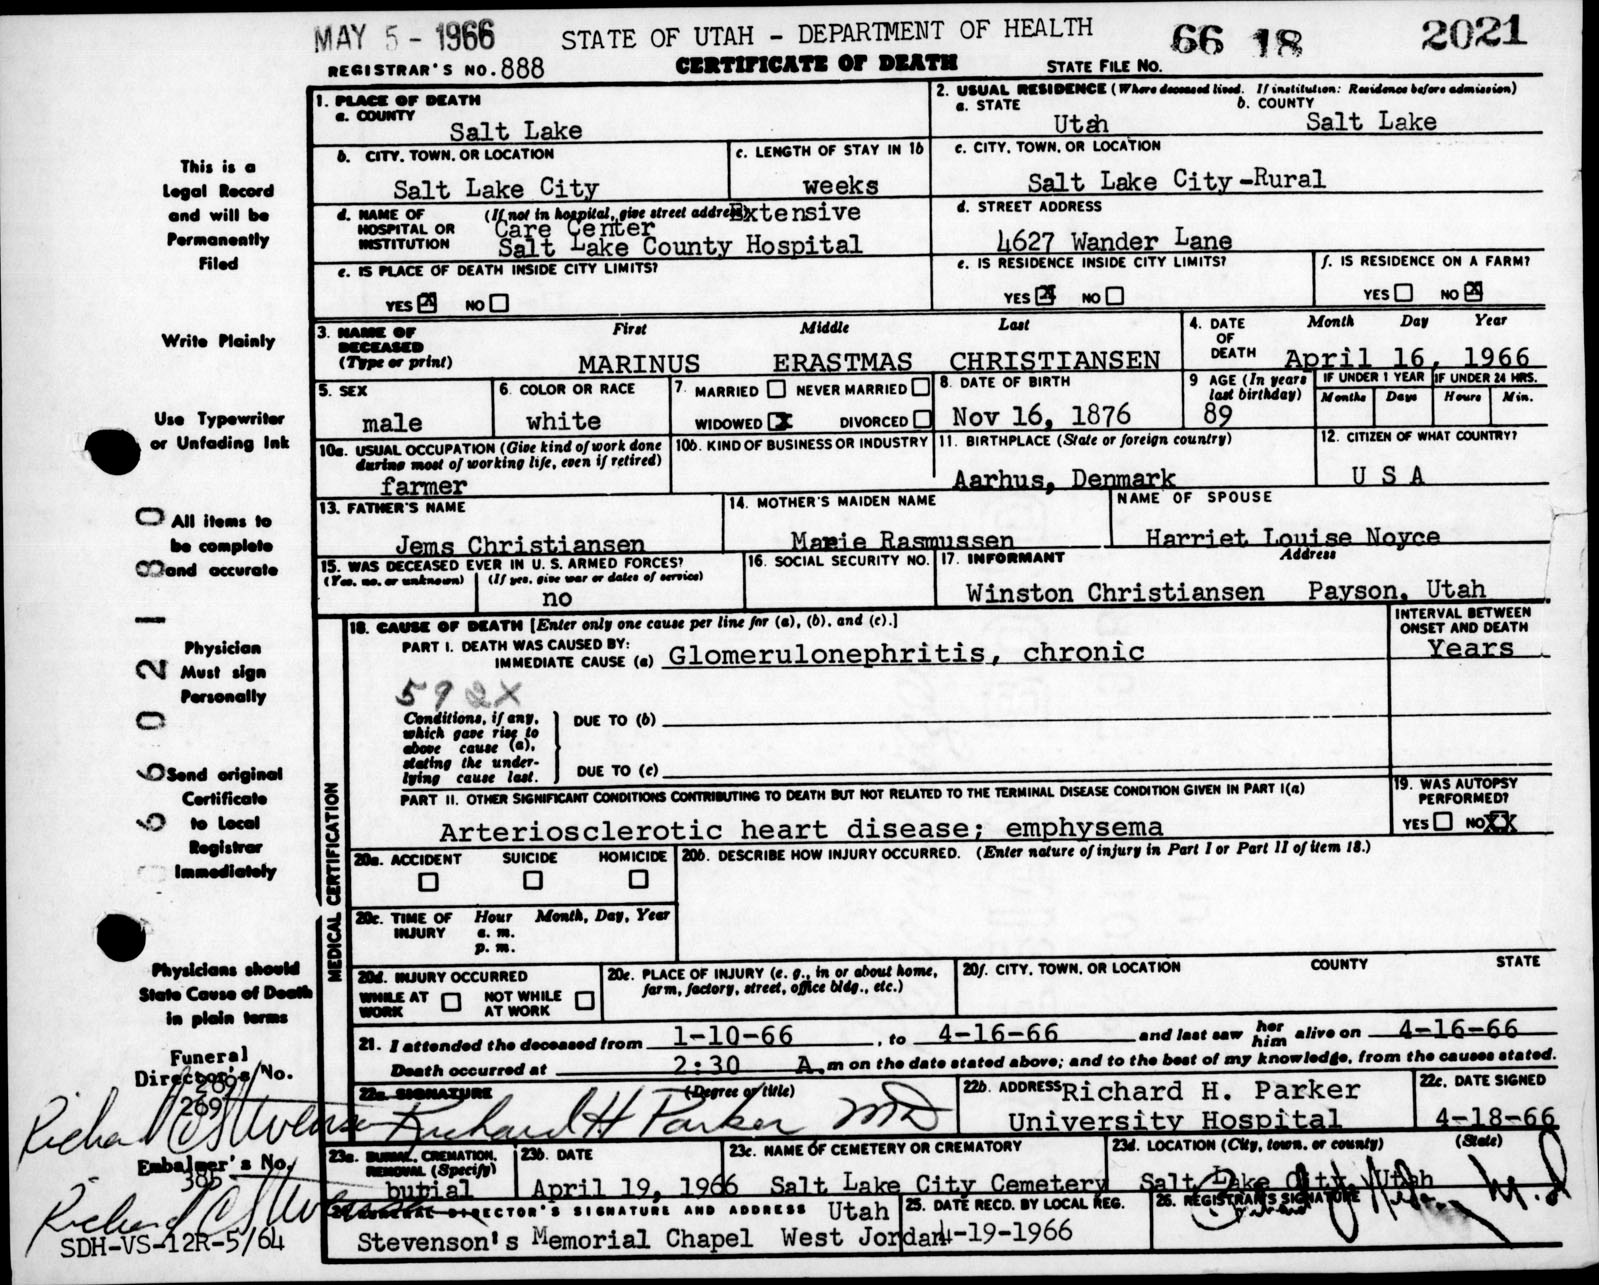 MAY 5 - 1966 STATE OF UTAH - DEPARTMENT OF HEALTH 66 18 2021
REGISTRAR'S NO. 888 CERTIFICATE OF DEATH STATE FILE NO.
1. PLACE OF DEATH
a. COUNTY
Salt Lake
2. USUAL RESIDENCE (Where deceased lived. If institution: Residence before admission)
a. STATE b. COUNTY
Utah Salt Lake
b. CITY, TOWN, OR LOCATION
Salt Lake City
c. LENGTH OF STAY IN 1b
weeks
c. CITY, TOWN, OR LOCATION
Salt Lake City-Rural
d. NAME OF HOSPITAL OR INSTITUTION (If not in hospital, give street address)
Extensive
Care Center
Salt Lake County Hospital
d. STREET ADDRESS
4627 Wander Lane
e. IS PLACE OF DEATH INSIDE CITY LIMITS?
YES X NO
e. IS RESIDENCE INSIDE CITY LIMITS?
YES X NO
f. IS RESIDENCE ON A FARM?
YES NO X
3. NAME OF DECEASED (Type or print)
First Middle Last
MARINUS ERASTMAS CHRISTIANSEN
4. DATE OF DEATH Month Day Year
April 16, 1966
5. SEX
male
6. COLOR OR RACE
white
7. MARRIED NEVER MARRIED
WIDOWED X DIVORCED
8. DATE OF BIRTH
Nov 16, 1876
9 AGE (In years last birthday)
89
IF UNDER 1 YEAR IF UNDER 24 HRS.
Months Days Hours Min.
10a. USUAL OCCUPATION (Give kind of work done during most of working life, even if retired)
farmer
10b. KIND OF BUSINESS OR INDUSTRY
11. BIRTHPLACE (State or foreign country)
Aarhus, Denmark
12. CITIZEN OF WHAT COUNTRY?
U S A
13. FATHER'S NAME
Jems Christiansen
14. MOTHER'S MAIDEN NAME
Marie Rasmussen
NAME OF SPOUSE
Harriet Louise Noyce
15. WAS DECEASED EVER IN U. S. ARMED FORCES?
(Yes, no, or unknown) (If yes, give war or dates of service)
no
16. SOCIAL SECURITY NO.
17. INFORMANT Address
Winston Christiansen Payson, Utah
MEDICAL CERTIFICATION
18. CAUSE OF DEATH [Enter only one cause per line for (a), (b), and (c).]
INTERVAL BETWEEN ONSET AND DEATH
PART I. DEATH WAS CAUSED BY:
IMMEDIATE CAUSE (a) Glomerulonephritis, chronic Years
592X
Conditions, if any, which gave rise to above cause (a), stating the underlying cause last.
DUE TO (b)
DUE TO (c)
PART II. OTHER SIGNIFICANT CONDITIONS CONTRIBUTING TO DEATH BUT NOT RELATED TO THE TERMINAL DISEASE CONDITION GIVEN IN PART I(a)
Arteriosclerotic heart disease; emphysema
19. WAS AUTOPSY PERFORMED?
YES NO XX
20a. ACCIDENT SUICIDE HOMICIDE
20b. DESCRIBE HOW INJURY OCCURRED. (Enter nature of injury in Part I or Part II of item 18.)
20c. TIME OF INJURY Hour Month, Day, Year
a. m.
p. m.
20d. INJURY OCCURRED
WHILE AT WORK NOT WHILE AT WORK
20e. PLACE OF INJURY (e. g., in or about home, farm, factory, street, office bldg., etc.)
20f. CITY, TOWN, OR LOCATION COUNTY STATE
21. I attended the deceased from 1-10-66, to 4-16-66 and last saw her him alive on 4-16-66
Death occurred at 2:30 A. m on the date stated above; and to the best of my knowledge, from the causes stated.
22a. SIGNATURE (Degree or title)
Richard H Parker MD
22b. ADDRESS Richard H. Parker
University Hospital
22c. DATE SIGNED
4-18-66
23a. BURIAL, CREMATION, REMOVAL (Specify)
burial
23b. DATE
April 19, 1966
23c. NAME OF CEMETERY OR CREMATORY
Salt Lake City Cemetery
23d. LOCATION (City, town, or county) (State)
Salt Lake City, Utah
DIRECTOR'S SIGNATURE AND ADDRESS Utah
Stevenson's Memorial Chapel West Jordan
25. DATE RECD. BY LOCAL REG.
4-19-1966
26. REGISTRAR'S SIGNATURE
M.D
This is a
Legal Record
and will be
Permanently
Filed
Write Plainly
Use Typewriter
or Unfading Ink
All items to
be complete
and accurate
Physician
Must sign
Personally
Send original
Certificate
to Local
Registrar
Immediately
Physicians should
State Cause of Death
in plain terms
Funeral
Director's No.
269
Richard C Stevenson
Embalmer's No.
385
Richard C Stevenson
SDH-VS-12R-5/64